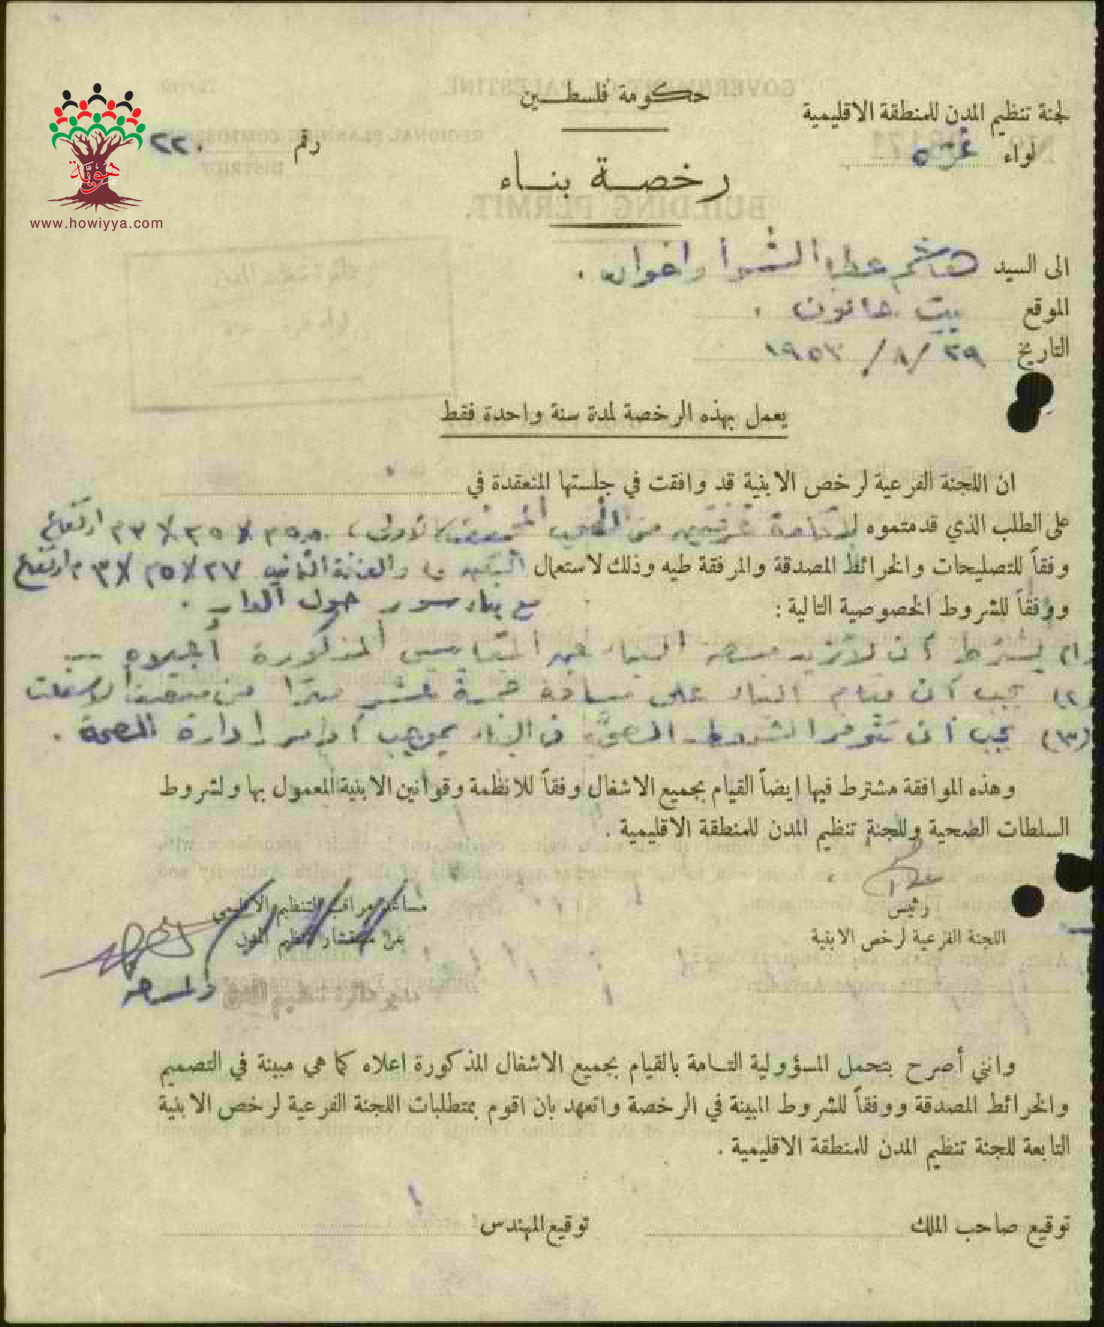 حكومة فلسطين
لجنة تنظيم المدن للمنطقة الاقليمية
لواء غزة
رقم ٢٢٠
رخصة بناء
هوية
www.howiyya.com
الى السيد هاشم عطا الشوا واخوانه .
الموقع بيت حانون .
التاريخ ٢٩ / ٨ / ١٩٥٣
يعمل بهذه الرخصة لمدة سنة واحدة فقط
ان اللجنة الفرعية لرخص الابنية قد وافقت في جلستها المنعقدة في
على الطلب الذي قدمتموه لاقامة غرفتين من الطوب الاولى ارتفاع
وفقاً للتصليحات والخرائط المصدقة والمرفقة طيه وذلك لاستعمال السكن ارتفاع
ووفقاً للشروط الخصوصية التالية : مع بناء سور حول الدار .
(١) يشترط أن لا تزيد مساحة البناء عن المقاييس المذكورة أعلاه
(٢) يجب أن يقام البناء على مسافة خمسة عشر مترا من منتصف الاسفلت
(٣) يجب أن تتوفر الشروط الصحية في البناء بموجب أوامر إدارة الصحة .
وهذه الموافقة مشترط فيها ايضاً القيام بجميع الاشغال وفقاً للانظمة وقوانين الابنية المعمول بها ولشروط
السلطات الصحية وللجنة تنظيم المدن للمنطقة الاقليمية .
رئيس
اللجنة الفرعية لرخص الابنية
مساعد مراقب التنظيم الاقليمي
عن مستشار تنظيم المدن
مدير دائرة تنظيم المدن
وانني أصرح بتحمل المسؤولية التامة بالقيام بجميع الاشغال المذكورة اعلاه كما هي مبينة في التصميم
والخرائط المصدقة ووفقاً للشروط المبينة في الرخصة واتعهد بان اقوم بمتطلبات اللجنة الفرعية لرخص الابنية
التابعة للجنة تنظيم المدن للمنطقة الاقليمية .
توقيع صاحب الملك
توقيع المهندس